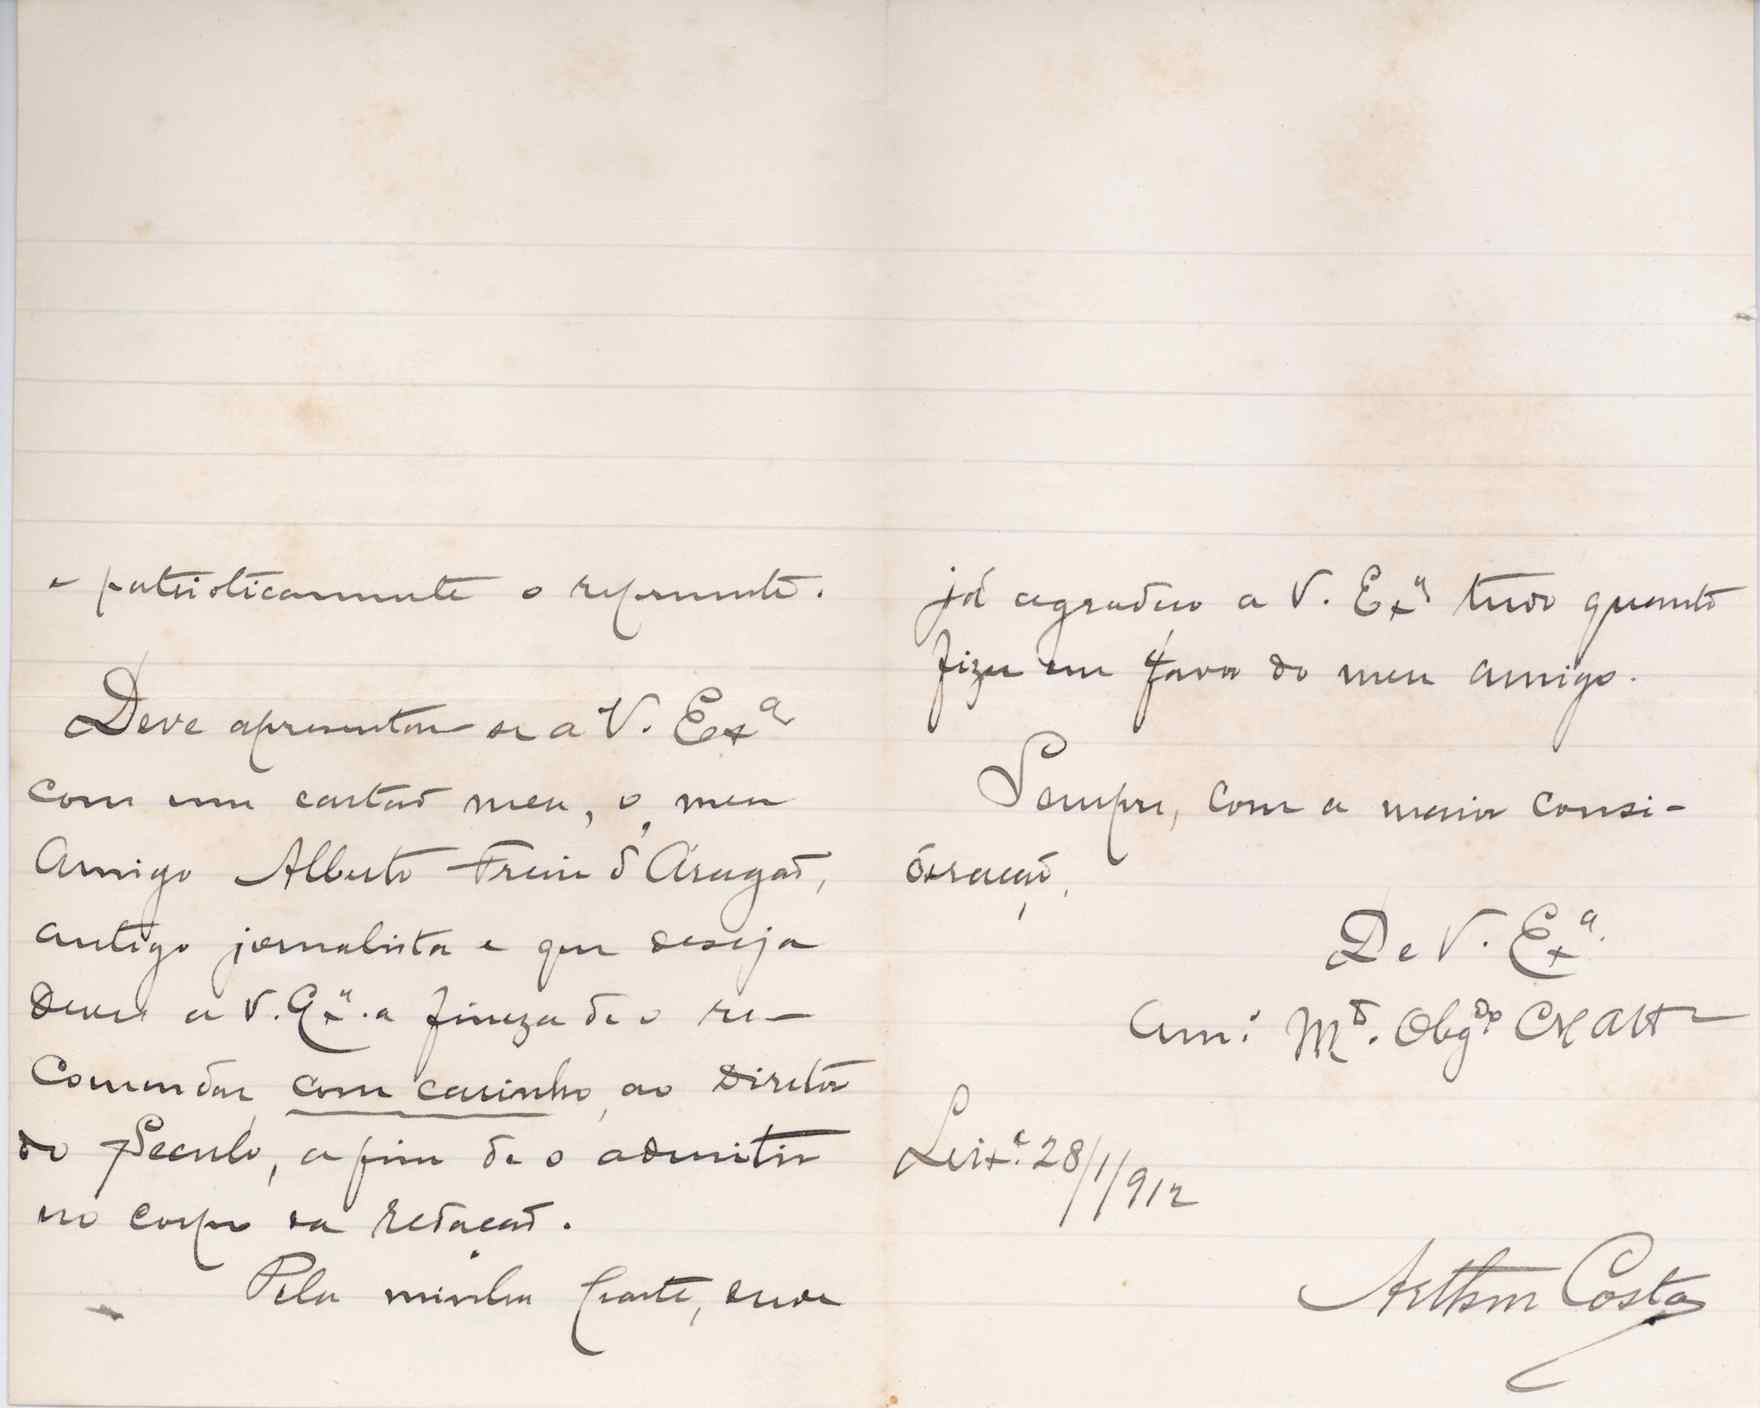 e patrioticamente o represente.
Deve apresentar-se a V. Exª
com um cartão meu, o meu
Amigo Alberto Freire d'Aragão,
antigo jornalista e que deseja
dever a V. Exª a fineza de o re-
comendar com carinho, ao Diretor
do Seculo, a fim de o admitir
no corpo da redação.
Pela minha parte, desde
já agradeço a V. Exª tudo quanto
fizer em favor do meu amigo.
Sempre, com a maior consi-
deração,
De V. Exª
Amº Mto. Obgdo
28/1/912
Arthur Costa